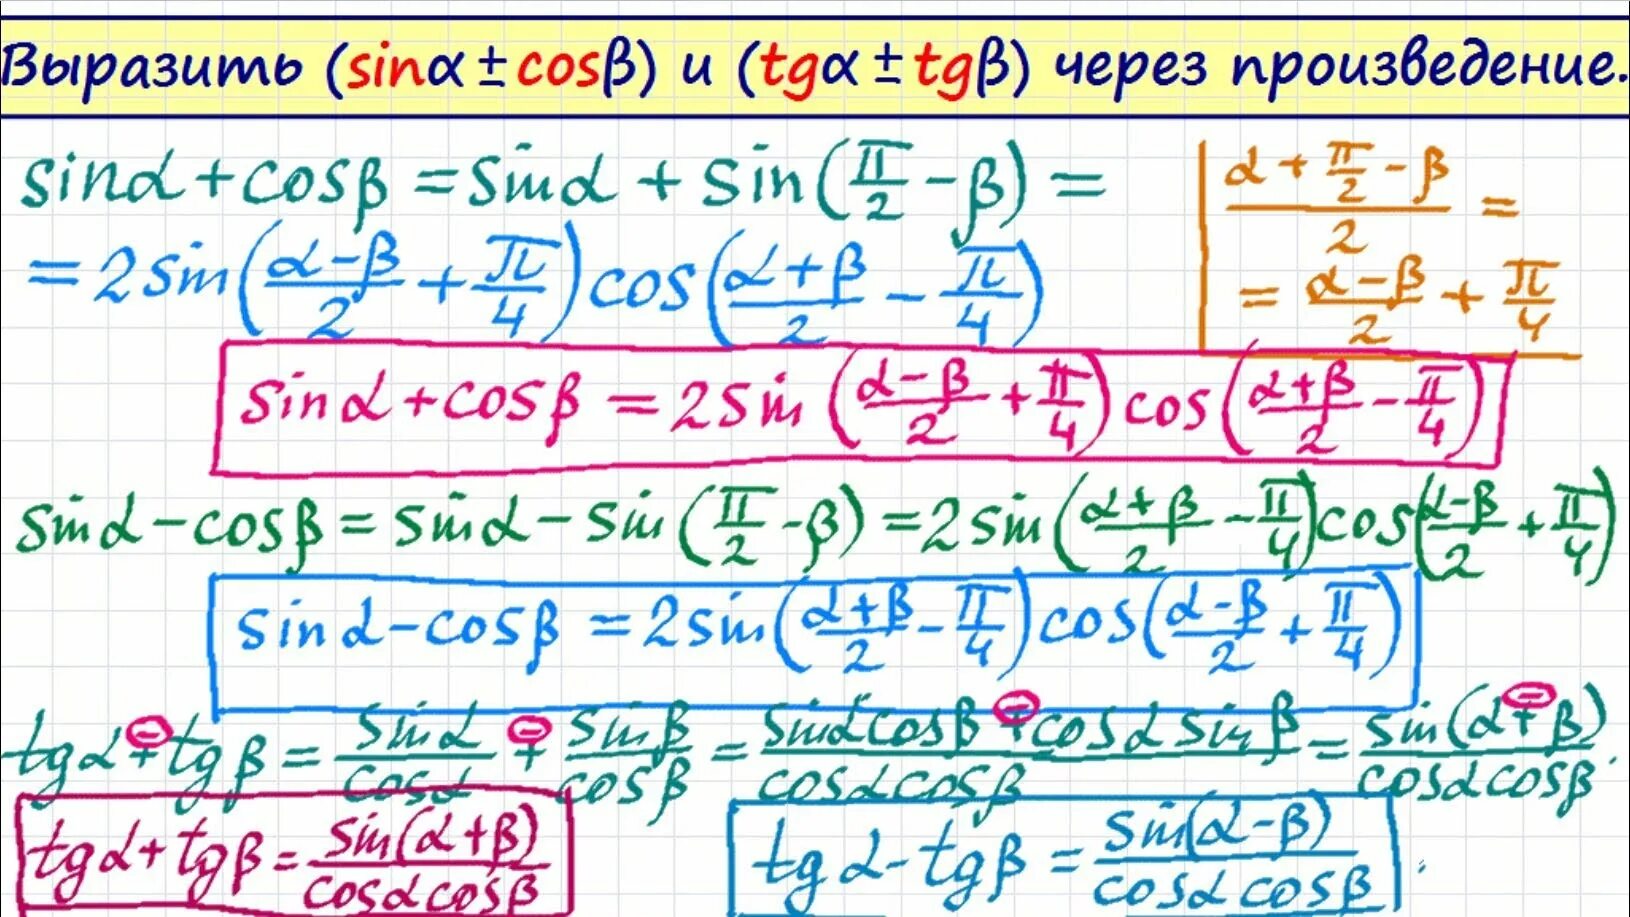 Выразить (sinα ± cosβ) и (tgα ± tgβ) через произведение.
sinα + cosβ = sinα + sin(π/2 - β) =
= 2sin((α-β)/2 + π/4)cos((α+β)/2 - π/4)
(α + π/2 - β)/2 =
= (α-β)/2 + π/4
sinα + cosβ = 2sin((α-β)/2 + π/4)cos((α+β)/2 - π/4)
sinα - cosβ = sinα - sin(π/2 - β) = 2sin((α+β)/2 - π/4)cos((α-β)/2 + π/4)
sinα - cosβ = 2sin((α+β)/2 - π/4)cos((α-β)/2 + π/4)
tgα ± tgβ = sinα/cosα ± sinβ/cosβ = (sinαcosβ ± cosαsinβ)/(cosαcosβ) = sin(α ± β)/(cosαcosβ).
tgα + tgβ = sin(α+β)/(cosαcosβ)
tgα - tgβ = sin(α-β)/(cosαcosβ)